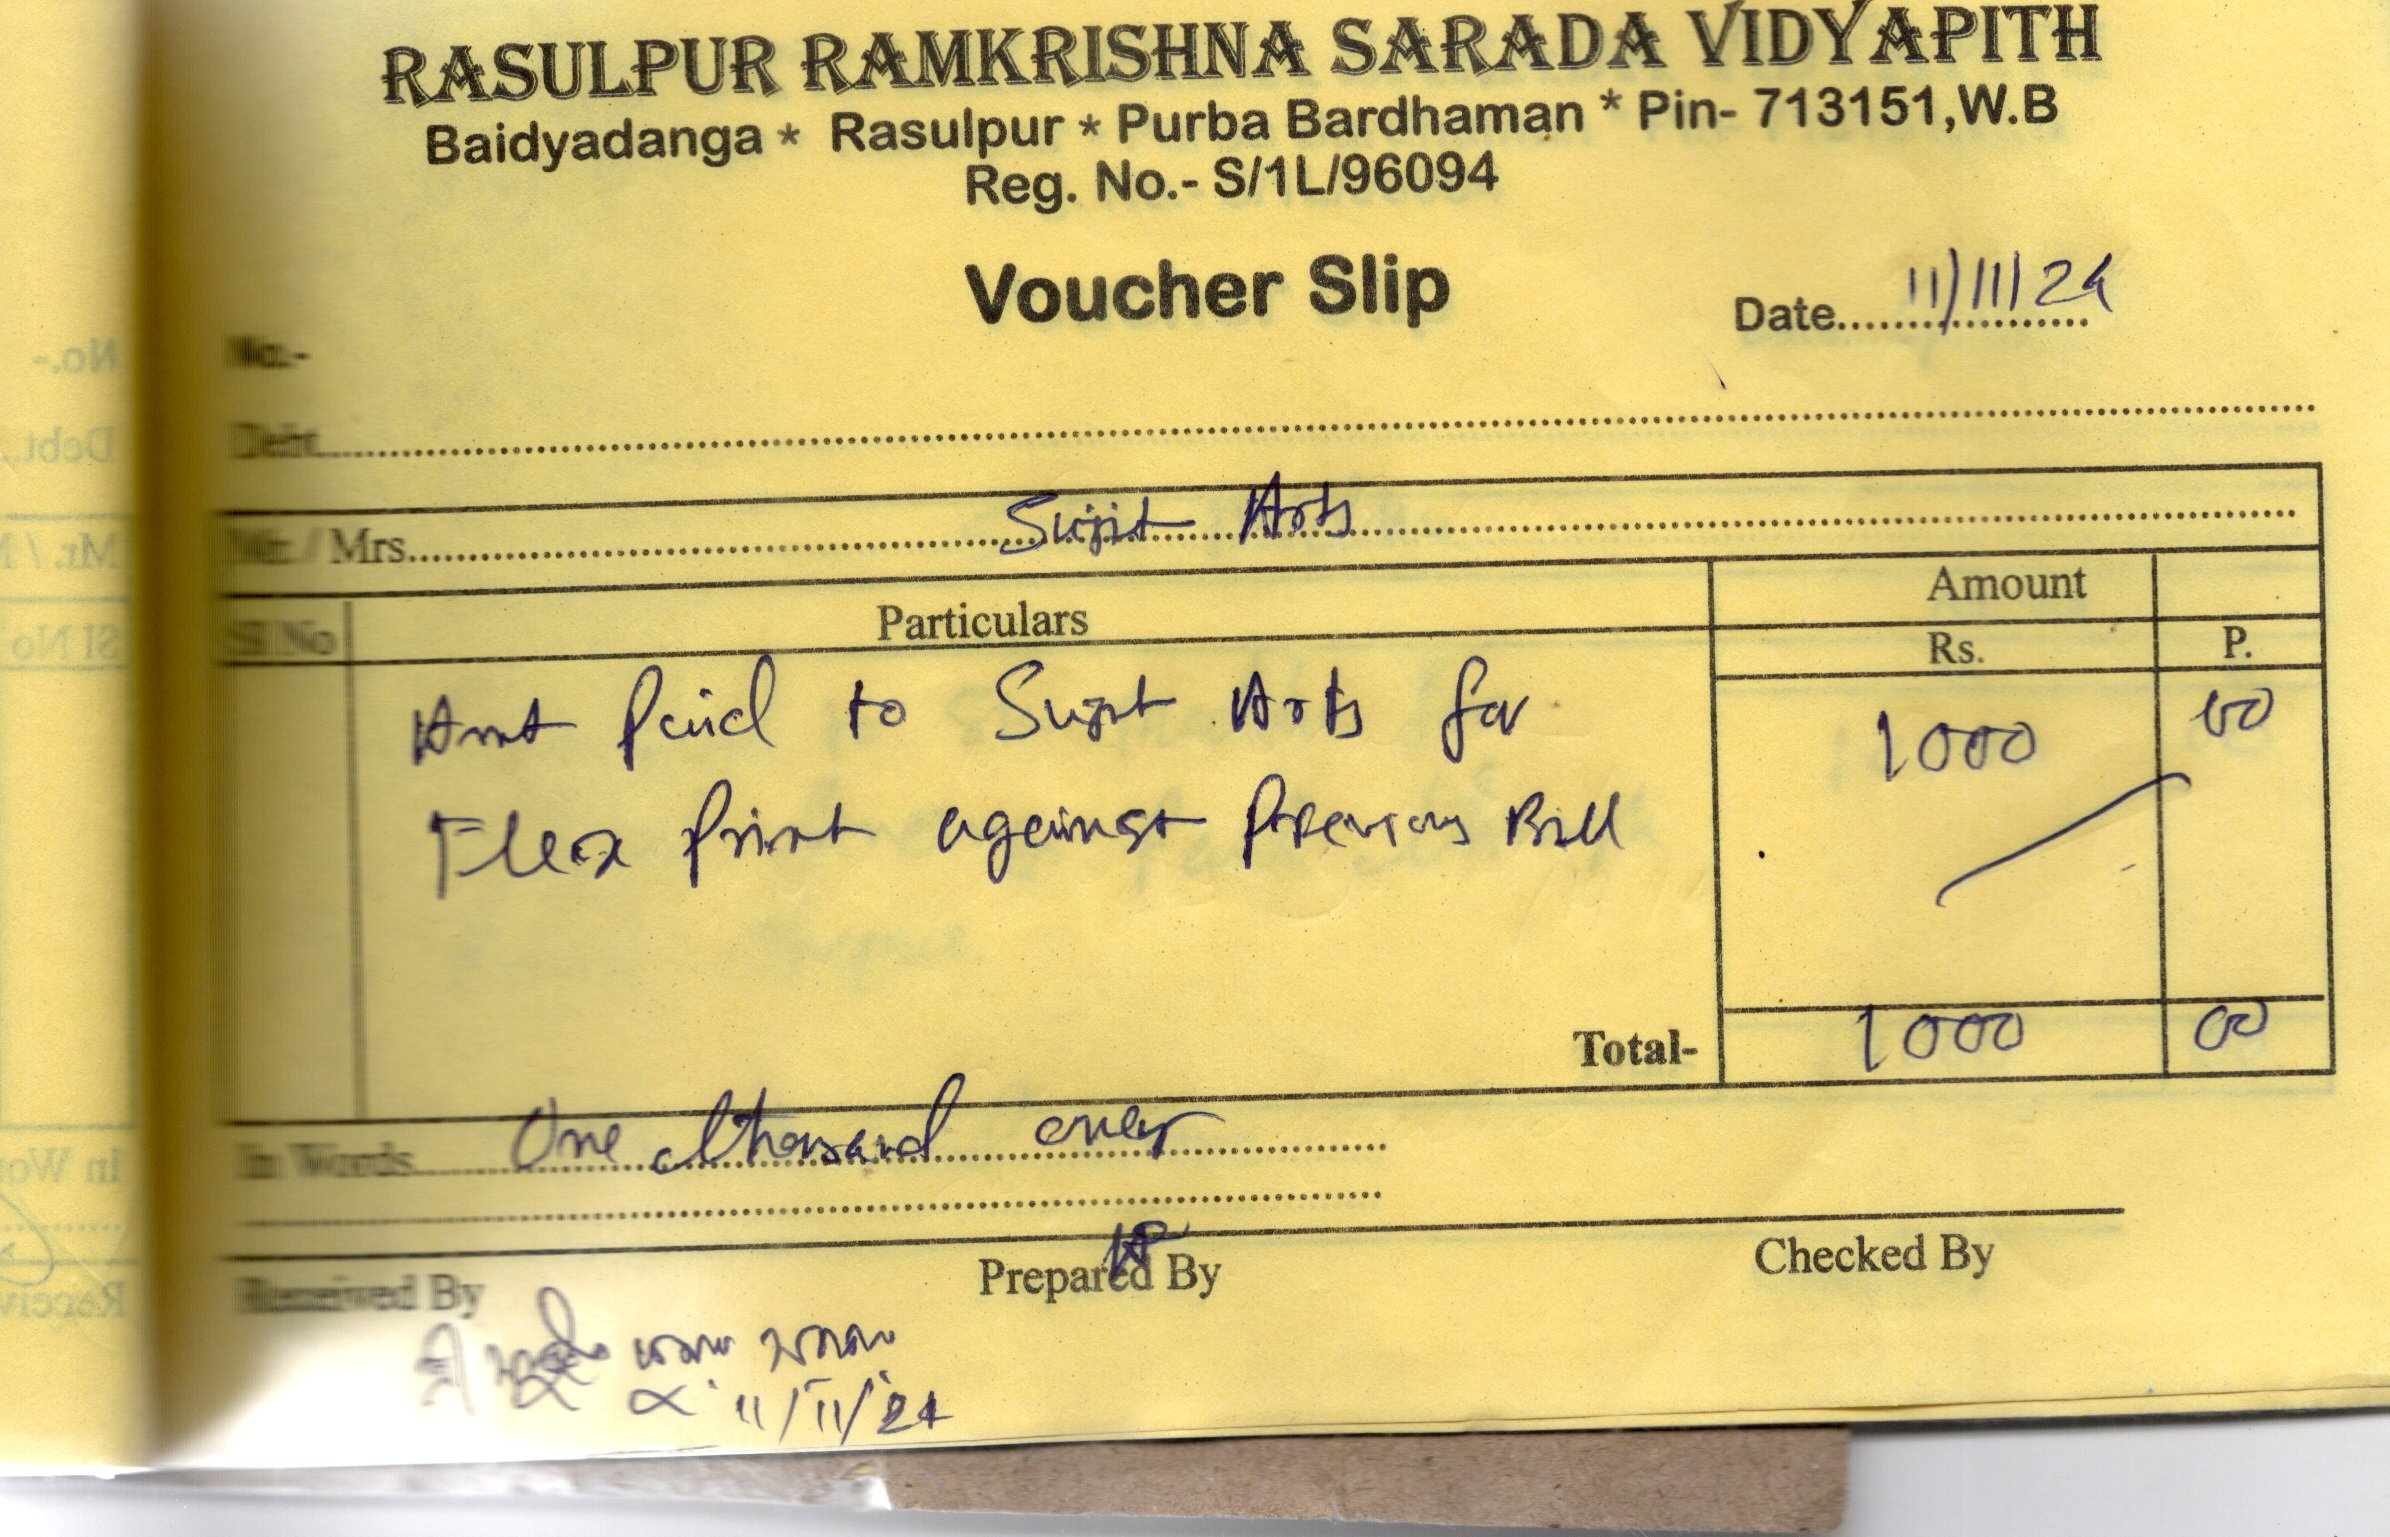 RASULPUR RAMKRISHNA SARADA VIDYAPITH
Baidyadanga * Rasulpur * Purba Bardhaman * Pin- 713151,W.B
Reg. No.- S/1L/96094
Voucher Slip
Date 11/11/24
No.-
Debt.
Mr. / Mrs. Sujit Arts
Sl No Particulars Amount
Rs. P.
Amt Paid to Sujit Arts for 1000 00
Flex Print against Previous Bill
Total- 1000 00
In Words One Thousand only
Received By Prepared By Checked By
11/11/24